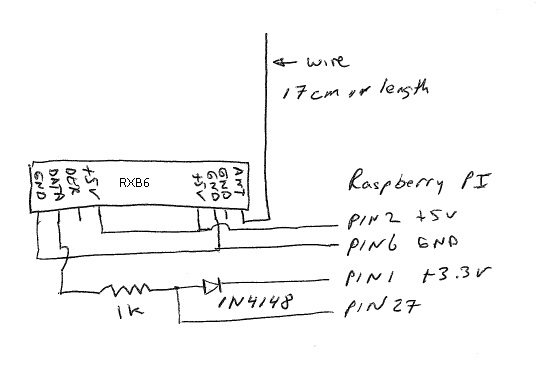 ← wire
17cm in length
GND DATA DER +5V RXB6 +5V GND GND ANT
Raspberry PI
PIN2 +5V
PIN6 GND
PIN1 +3.3V
1K 1N4148 PIN27